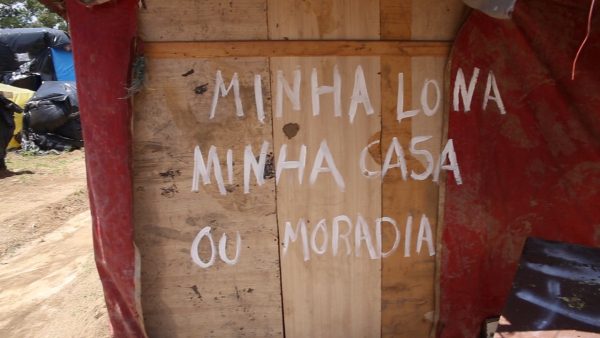 MINHA LONA
MINHA CASA
OU MORADIA